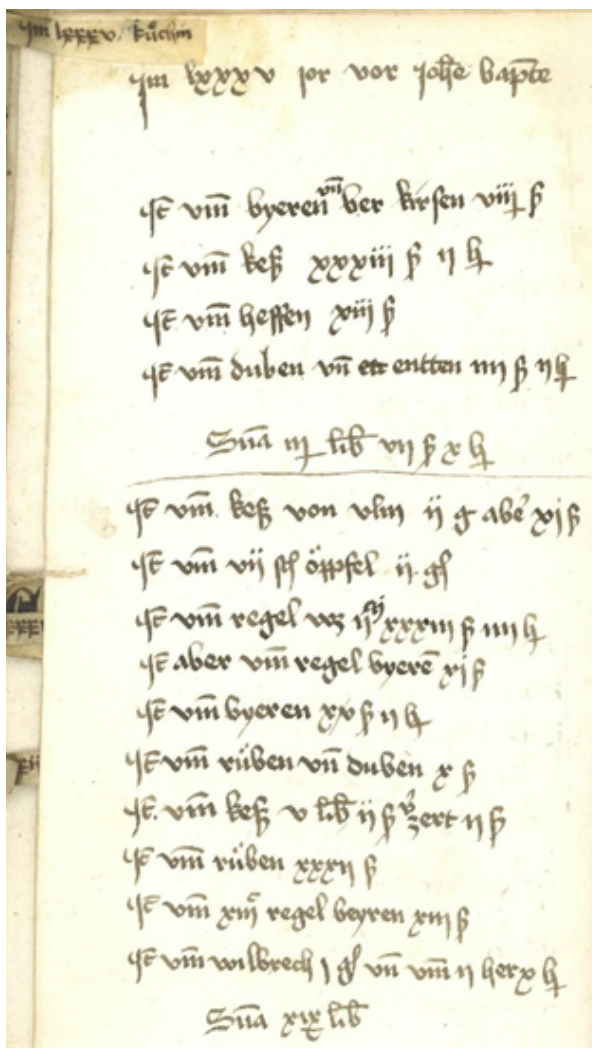 Jm lxxxv / kuͦchin
Jm lxxxv jor vor joh̅e bapt̅e
Jt̅ vm̅ byeren vn̅ ber kirsen viiij ß
Jt̅ vm̅ keß xxxiii ß ij h
Jt̅ vm̅ heffen xiij ß
Jt̅ vm̅ duben vn̅ entten iiij ß ij h
Su̅a iij lib̅ vij ß x h
Jt̅ vm̅ keß von vlm ij g aber xj ß
Jt̅ vm̅ vij sch öppfel ij gl
Jt̅ vm̅ regel xxxiij ß iiij h
Jt̅ aber vm̅ regel byere̅ xj ß
Jt̅ vm̅ byeren xv ß ij h
Jt̅ vm̅ rüben vn̅ duben x ß
Jt̅ vm̅ keß v lib̅ ij ß v͛zert ij ß
Jt̅ vm̅ rüben xxxij ß
Jt̅ vm̅ regel beyren xiij ß
Jt̅ vm̅ wilbrech j gl vn̅ vm̅ ij her x h
Su̅a xix lib̅